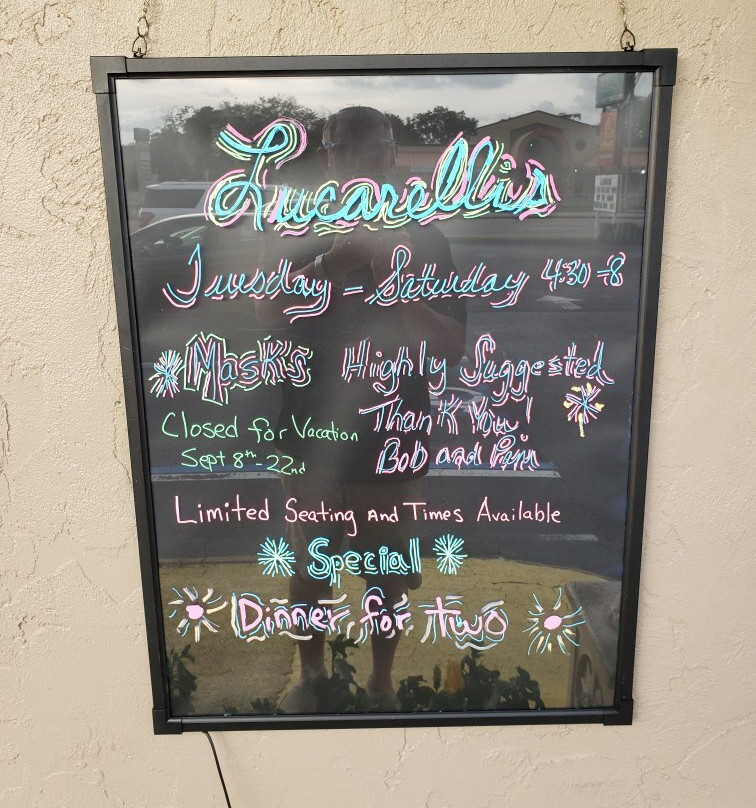 Lucarelli's
Tuesday - Saturday 4:30-8
Mask's Highly Suggested
Thank You!
Bob and Pam
Closed for Vacation
Sept 8th-22nd
Limited Seating And Times Available
Special
Dinner for two